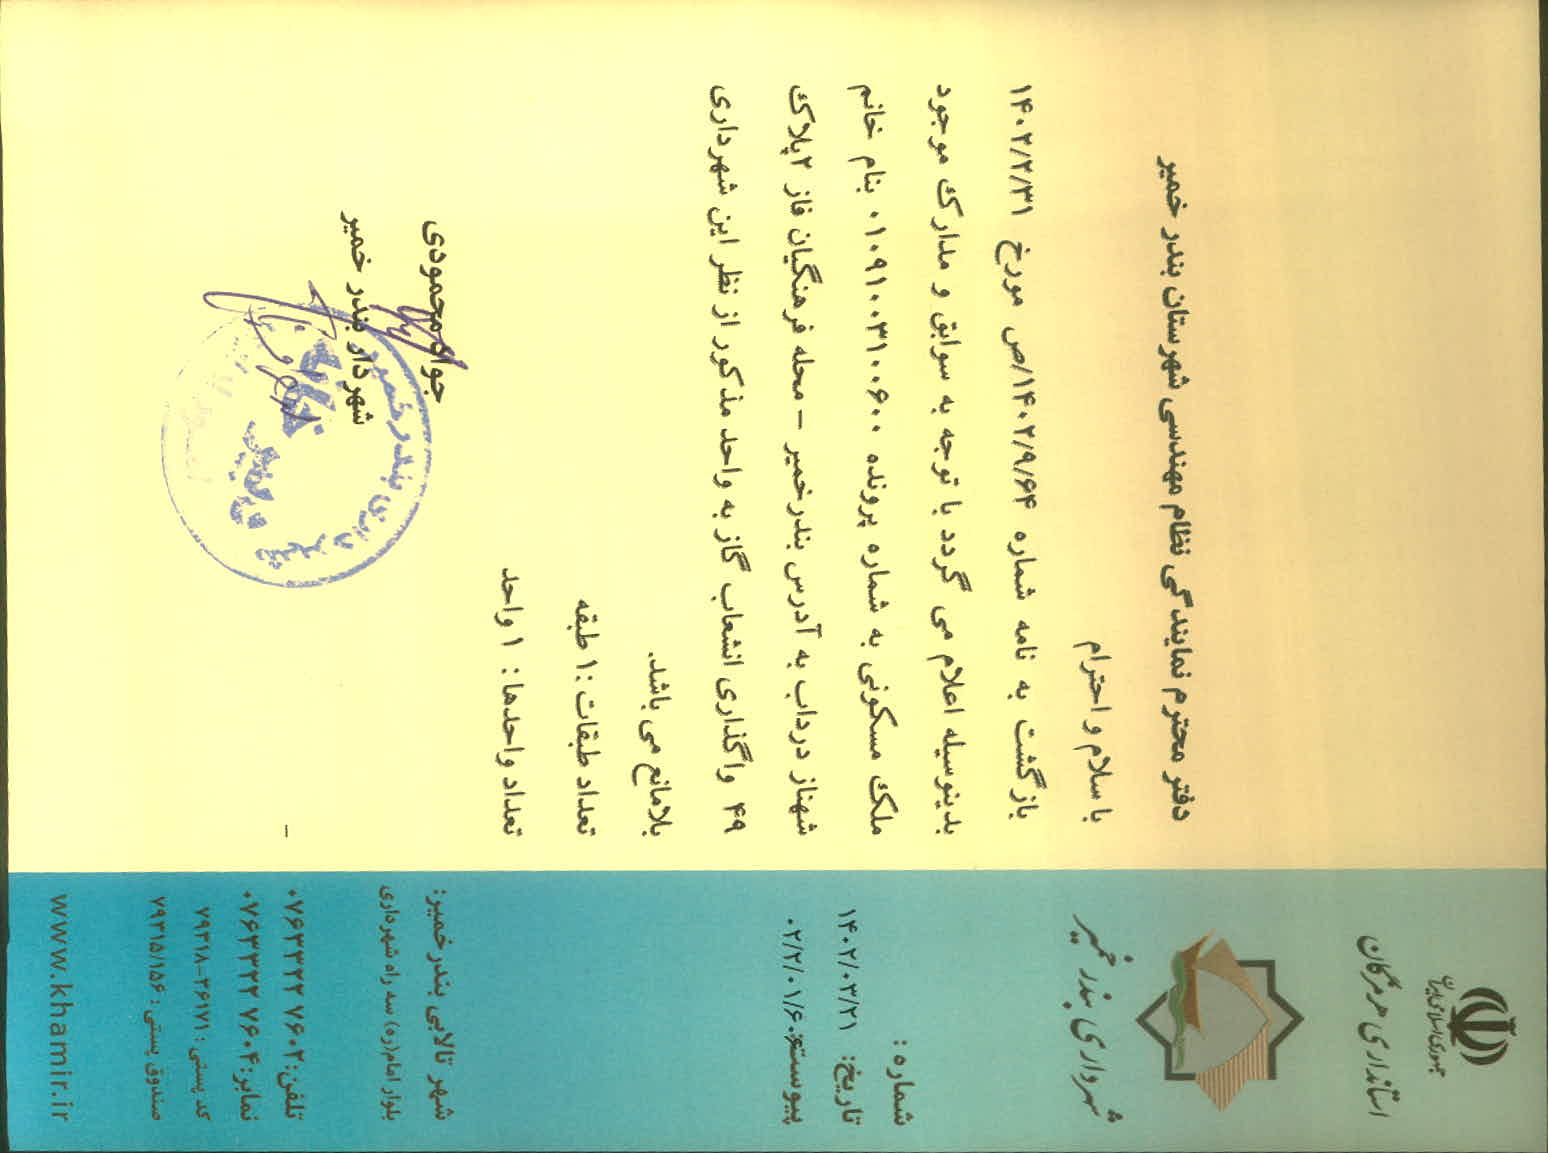 جمهوری اسلامی ایران
استانداری هرمزگان
شهرداری بندر خمیر
شماره :
تاریخ: ۱۴۰۲/۰۳/۲۱
پیوست:
دفتر محترم نمایندگی نظام مهندسی شهرستان بندر خمیر
با سلام و احترام
بازگشت به نامه شماره ۱۴۰۲/۹/۶۴/ص مورخ ۱۴۰۲/۲/۳۱
بدینوسیله اعلام می گردد با توجه به سوابق و مدارک موجود
ملک مسکونی به شماره پرونده ۰۱۰۹۱۰۰۳۱۰۰۶۰۰ بنام خانم
شهناز درداب به آدرس بندرخمیر – محله فرهنگیان فاز ۲پلاک
۴۹ واگذاری انشعاب گاز به واحد مذکور از نظر این شهرداری
بلامانع می باشد.
تعداد طبقات :۱ طبقه
تعداد واحدها : ۱ واحد
جواد محمودی
شهردار بندر خمیر
شهرداری بندر خمیر
شهر تالابی بندر خمیر:
بلوار امام(ره) سه راه شهرداری
تلفن: ۰۷۶۳۳۲۲ ۷۶۰۲
نمابر: ۰۷۶۳۳۲۲ ۷۶۰۴
کد پستی : ۷۹۳۱۸-۲۶۱۷۱
صندوق پستی : ۷۹۳۱۵/۱۵۶
www.khamir.ir